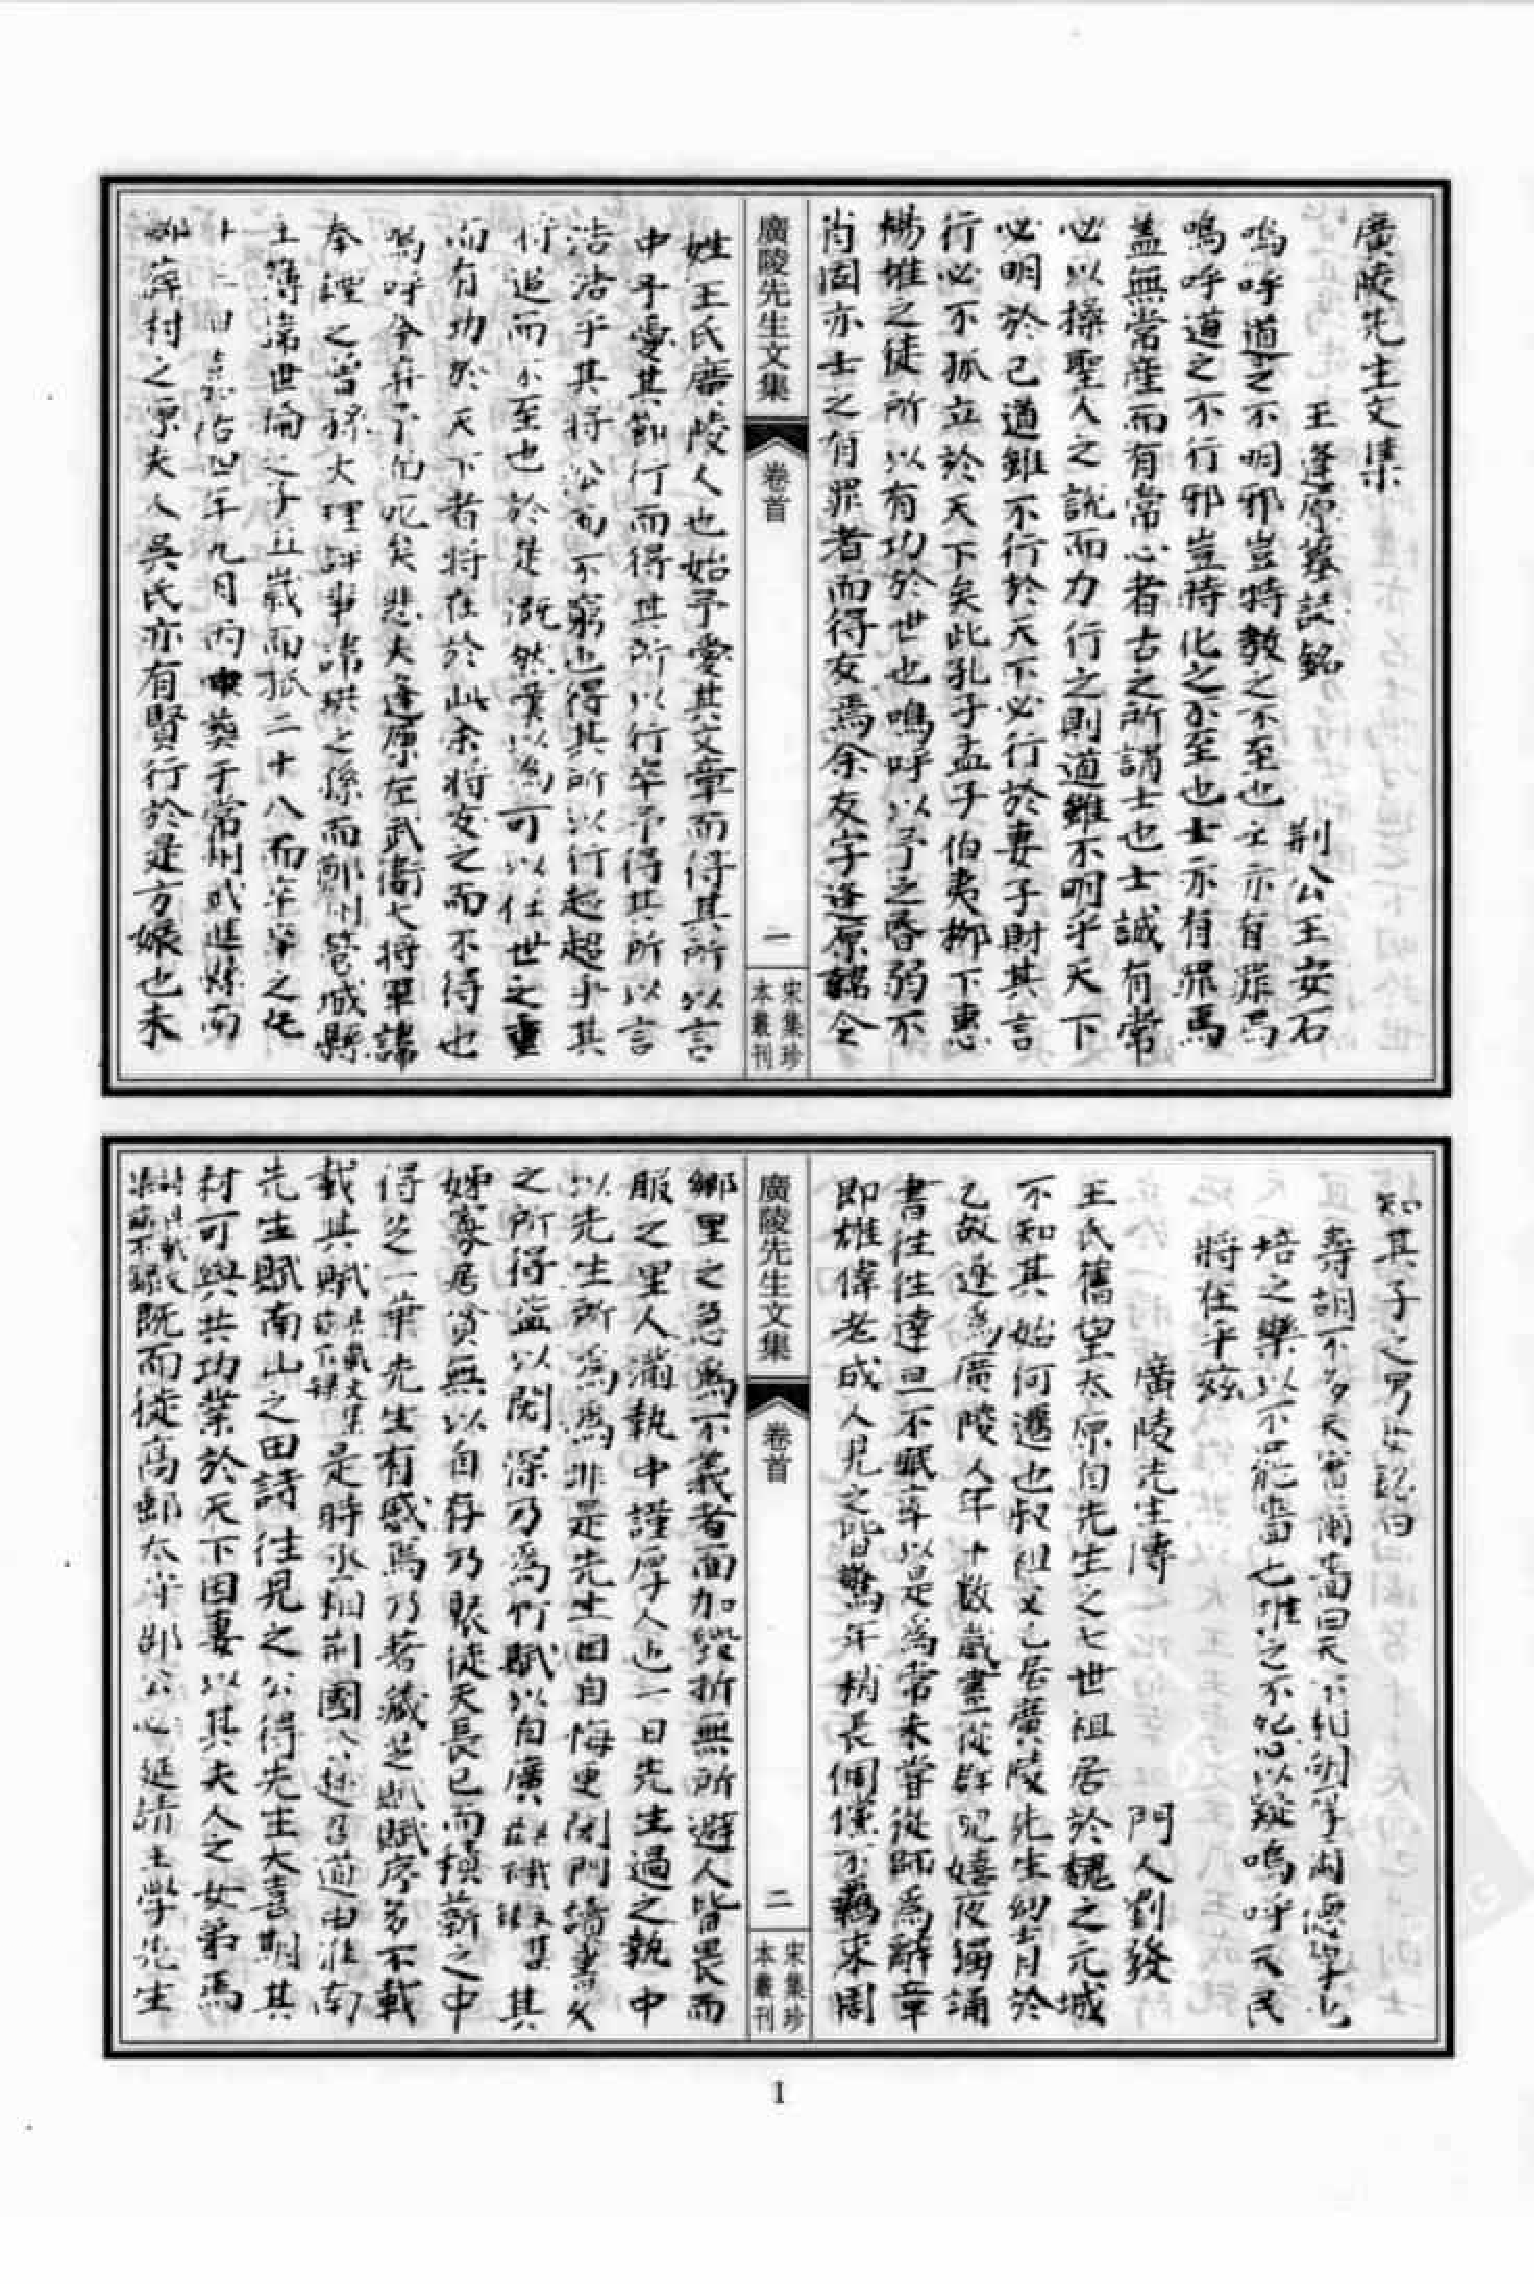 廣陵先生文集
王逢原墓誌銘
荆公王安石
嗚呼道之不明邪豈特教之不至也士亦有罪焉
嗚呼道之不行邪豈特化之不至也士亦有罪焉
蓋無常產而有常心者古之所謂士也士誠有常
心以操聖人之說而力行之則道雖不明乎天下
必明於己道雖不行於天下必行於妻子財其言
行必不孤立於天下矣此孔子孟子伯夷栁下惠
楊雄之徒所以有功於世也嗚呼以予之昏弱不
肖固亦士之有罪者而得友焉余友字逢原諱令
廣陵先生文集
卷首
一
宋集珍
本叢刊
姓王氏廣陵人也始予愛其文章而得其所以言
中予愛其節行而得其所以行卒予得其所以言
浩浩乎其將公而不窮也得其所以行超超乎其
將追而不至也於是漑然以為可以任世之重
而有功於天下者將在於此余將友之而不得也
嗚呼今弃予而死矣悲夫逢原左武衞大將軍諱
奉諲之曾孫大理評事諱珙之孫而鄭州管城縣
主簿諱世倫之子五歲而孤二十八而卒卒之
九月丙申葬于常州武進縣南
鄉薛村之原夫人吳氏亦有賢行於是方娠也未
知其子之男女銘曰
壽胡不多天實爾嗇曰天不
培之樂以不罷嗇也推之不以疑嗚呼天民
將在乎茲
廣陵先生傳
門人劉發
王氏舊望太原自先生之七世祖居於魏之元城
不知其始何遷也叔祖父乙居廣陵先生幼育於
乙故遂為廣陵人年十數歲晝從群兒嬉夜獨誦
書往往達旦不眠率以是為常未嘗從師為辭章
即雄偉老成人見之皆驚年稍長倜儻不羈束周
廣陵先生文集
卷首
二
宋集珍
本叢刊
鄉里之急為不義者面加毀折無所避人皆畏而
服之里人滿執中謹厚人也一日先生過之執中
以先生所為為非是先生因自悔更閉門讀書久
之所得益以閎深乃為竹賦以自廣其
姊寡居貧無以自存乃聚徒天長已而積薪之中
得芝一葉先生有感焉乃著藏芝賦賦序多不載
載其賦是時丞相荆國公道由淮南
先生賦南山之田詩往見之公得先生大喜期其
材可與共功業於天下因妻以其夫人之女弟焉
既而徙高郵太守邵公必延請主學先生
1